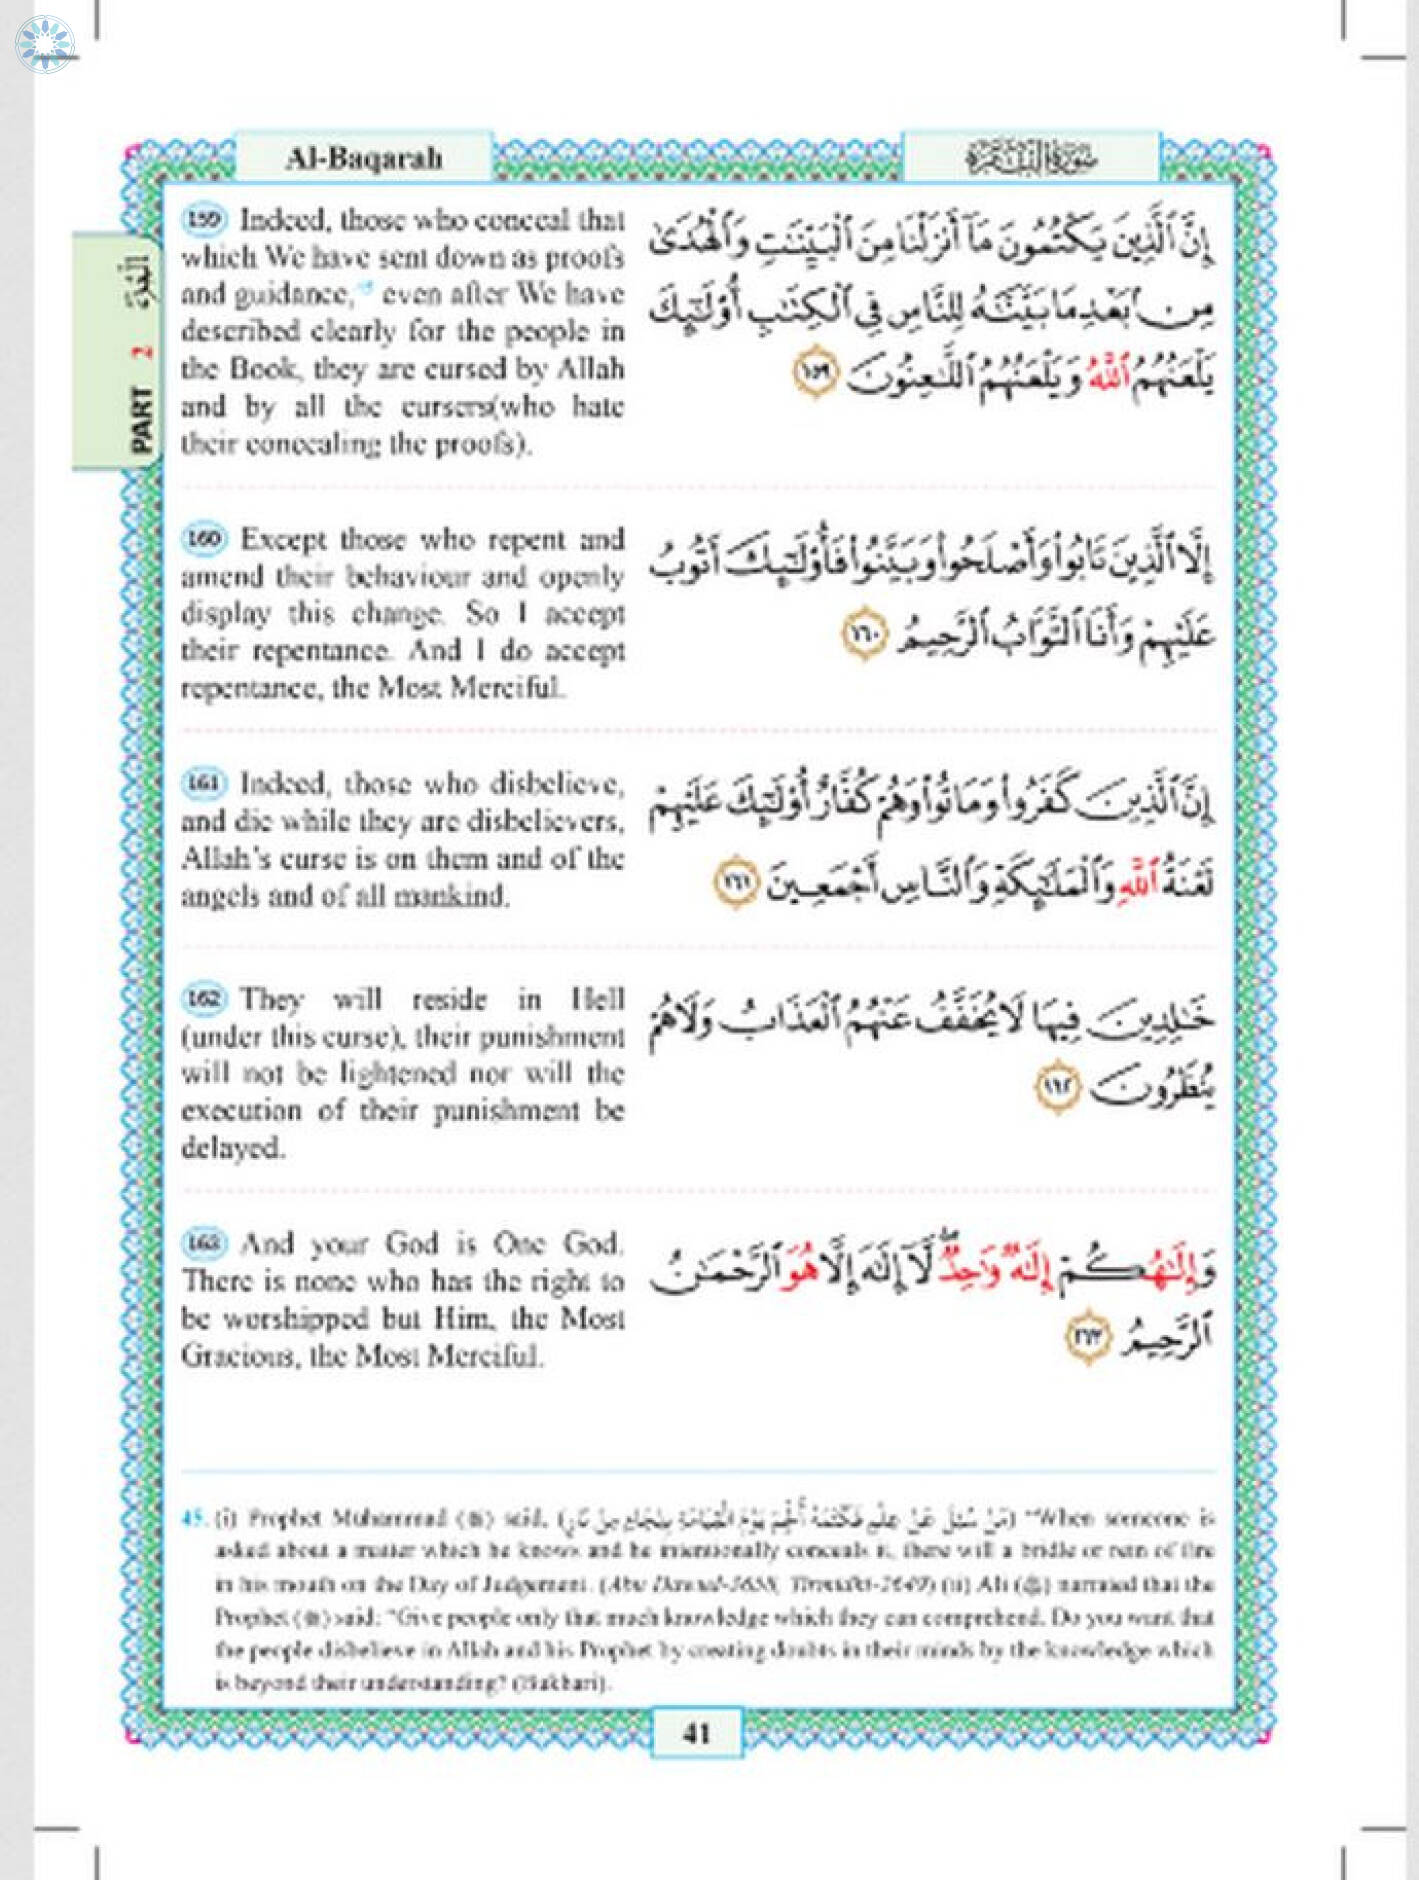 Al-Baqarah
سُورَةُ الْبَقَرَة
PART 2 البقرة
159 Indeed, those who conceal that
which We have sent down as proofs
and guidance,45 even after We have
described clearly for the people in
the Book, they are cursed by Allah
and by all the cursers(who hate
their concealing the proofs).
إِنَّ ٱلَّذِينَ يَكْتُمُونَ مَآ أَنزَلْنَا مِنَ ٱلْبَيِّنَٰتِ وَٱلْهُدَىٰ
مِنۢ بَعْدِ مَا بَيَّنَّٰهُ لِلنَّاسِ فِى ٱلْكِتَٰبِ أُو۟لَٰٓئِكَ
يَلْعَنُهُمُ ٱللَّهُ وَيَلْعَنُهُمُ ٱللَّٰعِنُونَ ١٥٩
160 Except those who repent and
amend their behaviour and openly
display this change. So I accept
their repentance. And I do accept
repentance, the Most Merciful.
إِلَّا ٱلَّذِينَ تَابُوا۟ وَأَصْلَحُوا۟ وَبَيَّنُوا۟ فَأُو۟لَٰٓئِكَ أَتُوبُ
عَلَيْهِمْ وَأَنَا ٱلتَّوَّابُ ٱلرَّحِيمُ ١٦٠
161 Indeed, those who disbelieve,
and die while they are disbelievers,
Allah's curse is on them and of the
angels and of all mankind.
إِنَّ ٱلَّذِينَ كَفَرُوا۟ وَمَاتُوا۟ وَهُمْ كُفَّارٌ أُو۟لَٰٓئِكَ عَلَيْهِمْ
لَعْنَةُ ٱللَّهِ وَٱلْمَلَٰٓئِكَةِ وَٱلنَّاسِ أَجْمَعِينَ ١٦١
162 They will reside in Hell
(under this curse), their punishment
will not be lightened nor will the
execution of their punishment be
delayed.
خَٰلِدِينَ فِيهَا لَا يُخَفَّفُ عَنْهُمُ ٱلْعَذَابُ وَلَا هُمْ
يُنظَرُونَ ١٦٢
163 And your God is One God.
There is none who has the right to
be worshipped but Him, the Most
Gracious, the Most Merciful.
وَإِلَٰهُكُمْ إِلَٰهٌ وَٰحِدٌ ۖ لَّآ إِلَٰهَ إِلَّا هُوَ ٱلرَّحْمَٰنُ
ٱلرَّحِيمُ ١٦٣
45. (i) Prophet Muhammad (ﷺ) said, (مَنْ سُئِلَ عَنْ عِلْمٍ فَكَتَمَهُ أُلْجِمَ يَوْمَ الْقِيَامَةِ بِلِجَامٍ مِنْ نَارٍ) "When someone is
asked about a matter which he knows and he intentionally conceals it, there will a bridle or rein of fire
in his mouth on the Day of Judgement. (Abu Dawud-3658, Tirmidhi-2649) (ii) Ali (ؓ) narrated that the
Prophet (ﷺ) said: "Give people only that much knowledge which they can comprehend. Do you want that
the people disbelieve in Allah and his Prophet by creating doubts in their minds by the knowledge which
is beyond their understanding? (Bukhari).
41